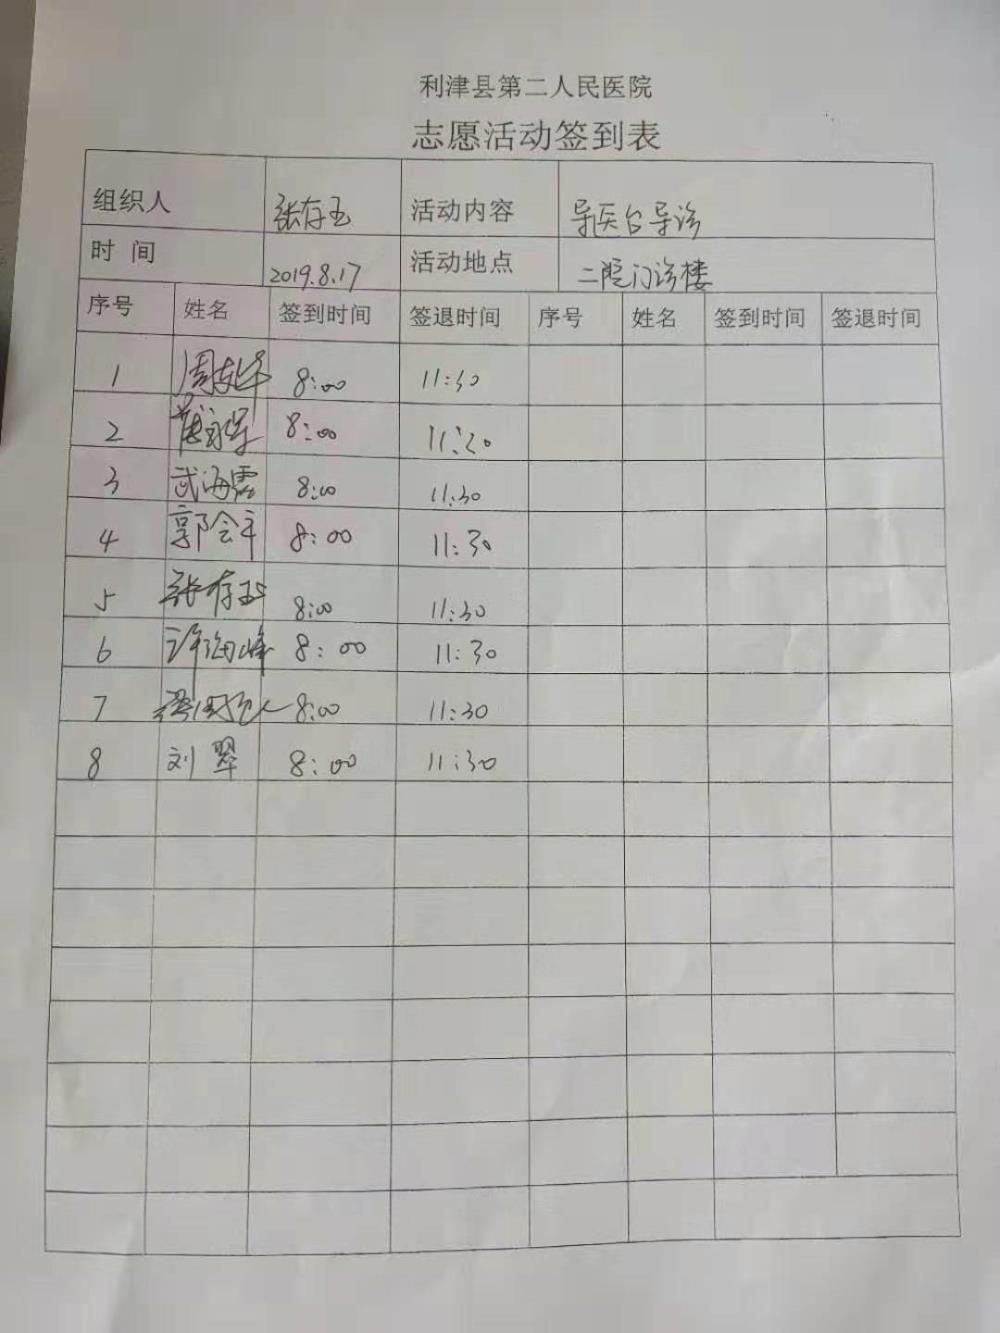 利津县第二人民医院
志愿活动签到表
组织人 张存玉 活动内容 导医台导诊
时 间 2019.8.17 活动地点 二院门诊楼
序号 姓名 签到时间 签退时间 序号 姓名 签到时间 签退时间
1 8:00 11:30
2 8:00 11:30
3 武海霞 8:00 11:30
4 郭会平 8:00 11:30
5 张存玉 8:00 11:30
6 许海峰 8:00 11:30
7 8:00 11:30
8 刘翠 8:00 11:30